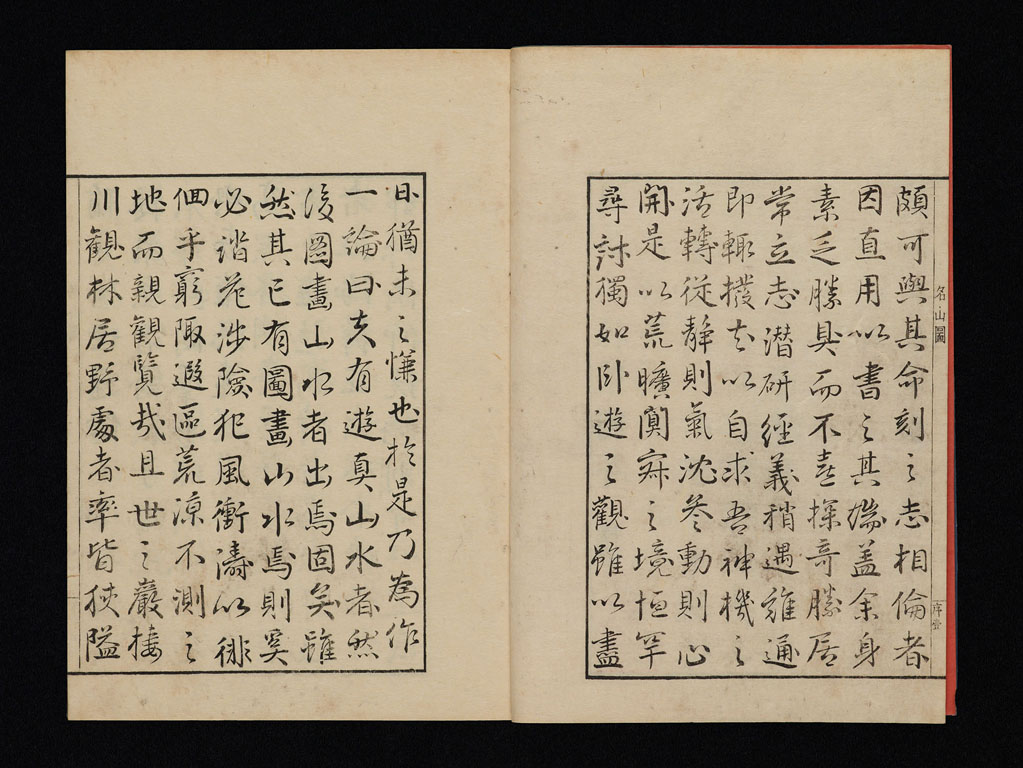 頗可與其命刻之志相倫者
因直用以書之其端蓋余身
素乏勝具而不喜探奇勝居
常立志潛研經義稍遇難通
即輒擬以自求吾神機之
活轉從靜則氣沈叅動則心
開是以荒曠闃寂之境恒罕
尋討獨如卧遊之觀雖以盡
名山圖
序
日猶未之慊也於是乃為作
一論曰夫有遊真山水者然
後圖畫山水者出焉固矣雖
然其已有圖畫山水焉則奚
必谐荒涉險犯風衝濤以徘
徊乎窮陬遐區荒涼不測之
地而親觀覽哉且世之巖棲
川觀林居野處者率皆狹隘